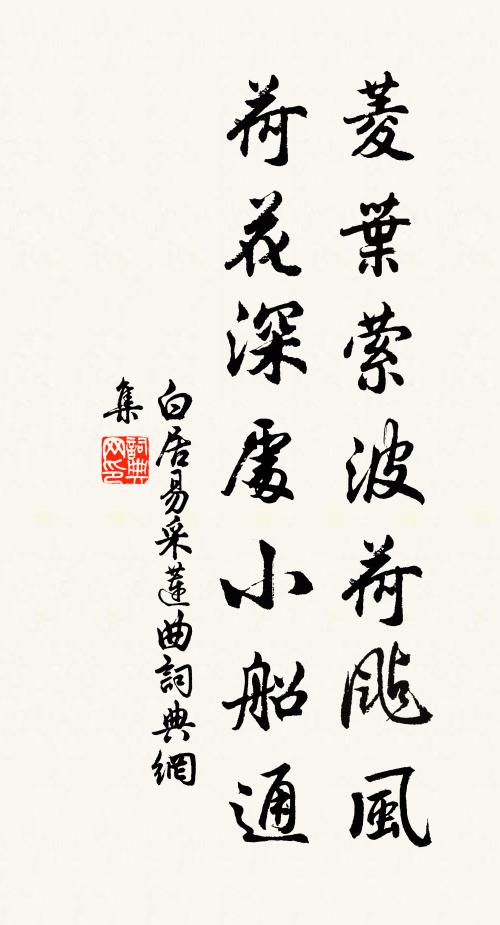 菱葉縈波荷颭風
荷花深處小船通
白居易采蓮曲詞典網
集
詞典网印